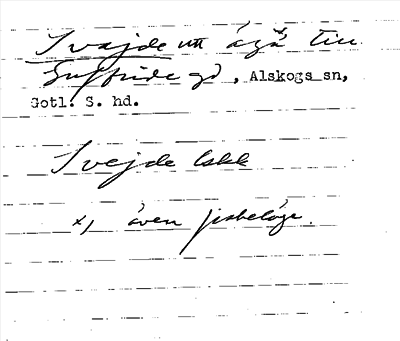 Svajde utt ägä x) till
Suffride gd, Alskogs sn,
Gotl. S. hd.
Svejde lskk
x) även fiskeläge.